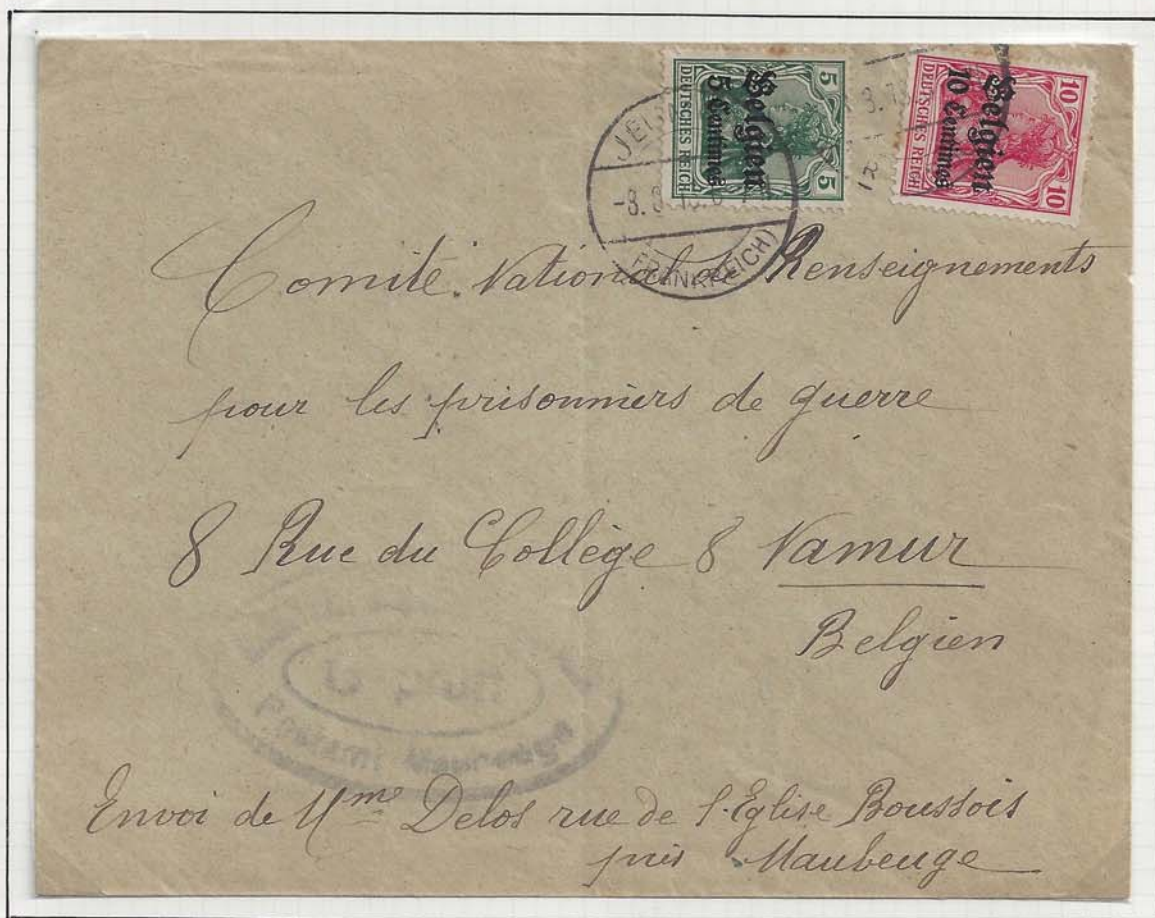 Belgien
5 Centimes
DEUTSCHES REICH
5
5
Belgien
10 Centimes
DEUTSCHES REICH
10
10
JEU
-8.8
(FRANKREICH)
12
Comité National de Renseignements
pour les prisonniers de guerre
8 Rue du Collège 8 Namur
Belgien
Postamt Maubeuge
Envoi de Mme Delos rue de l'Eglise Boussois
près Maubeuge